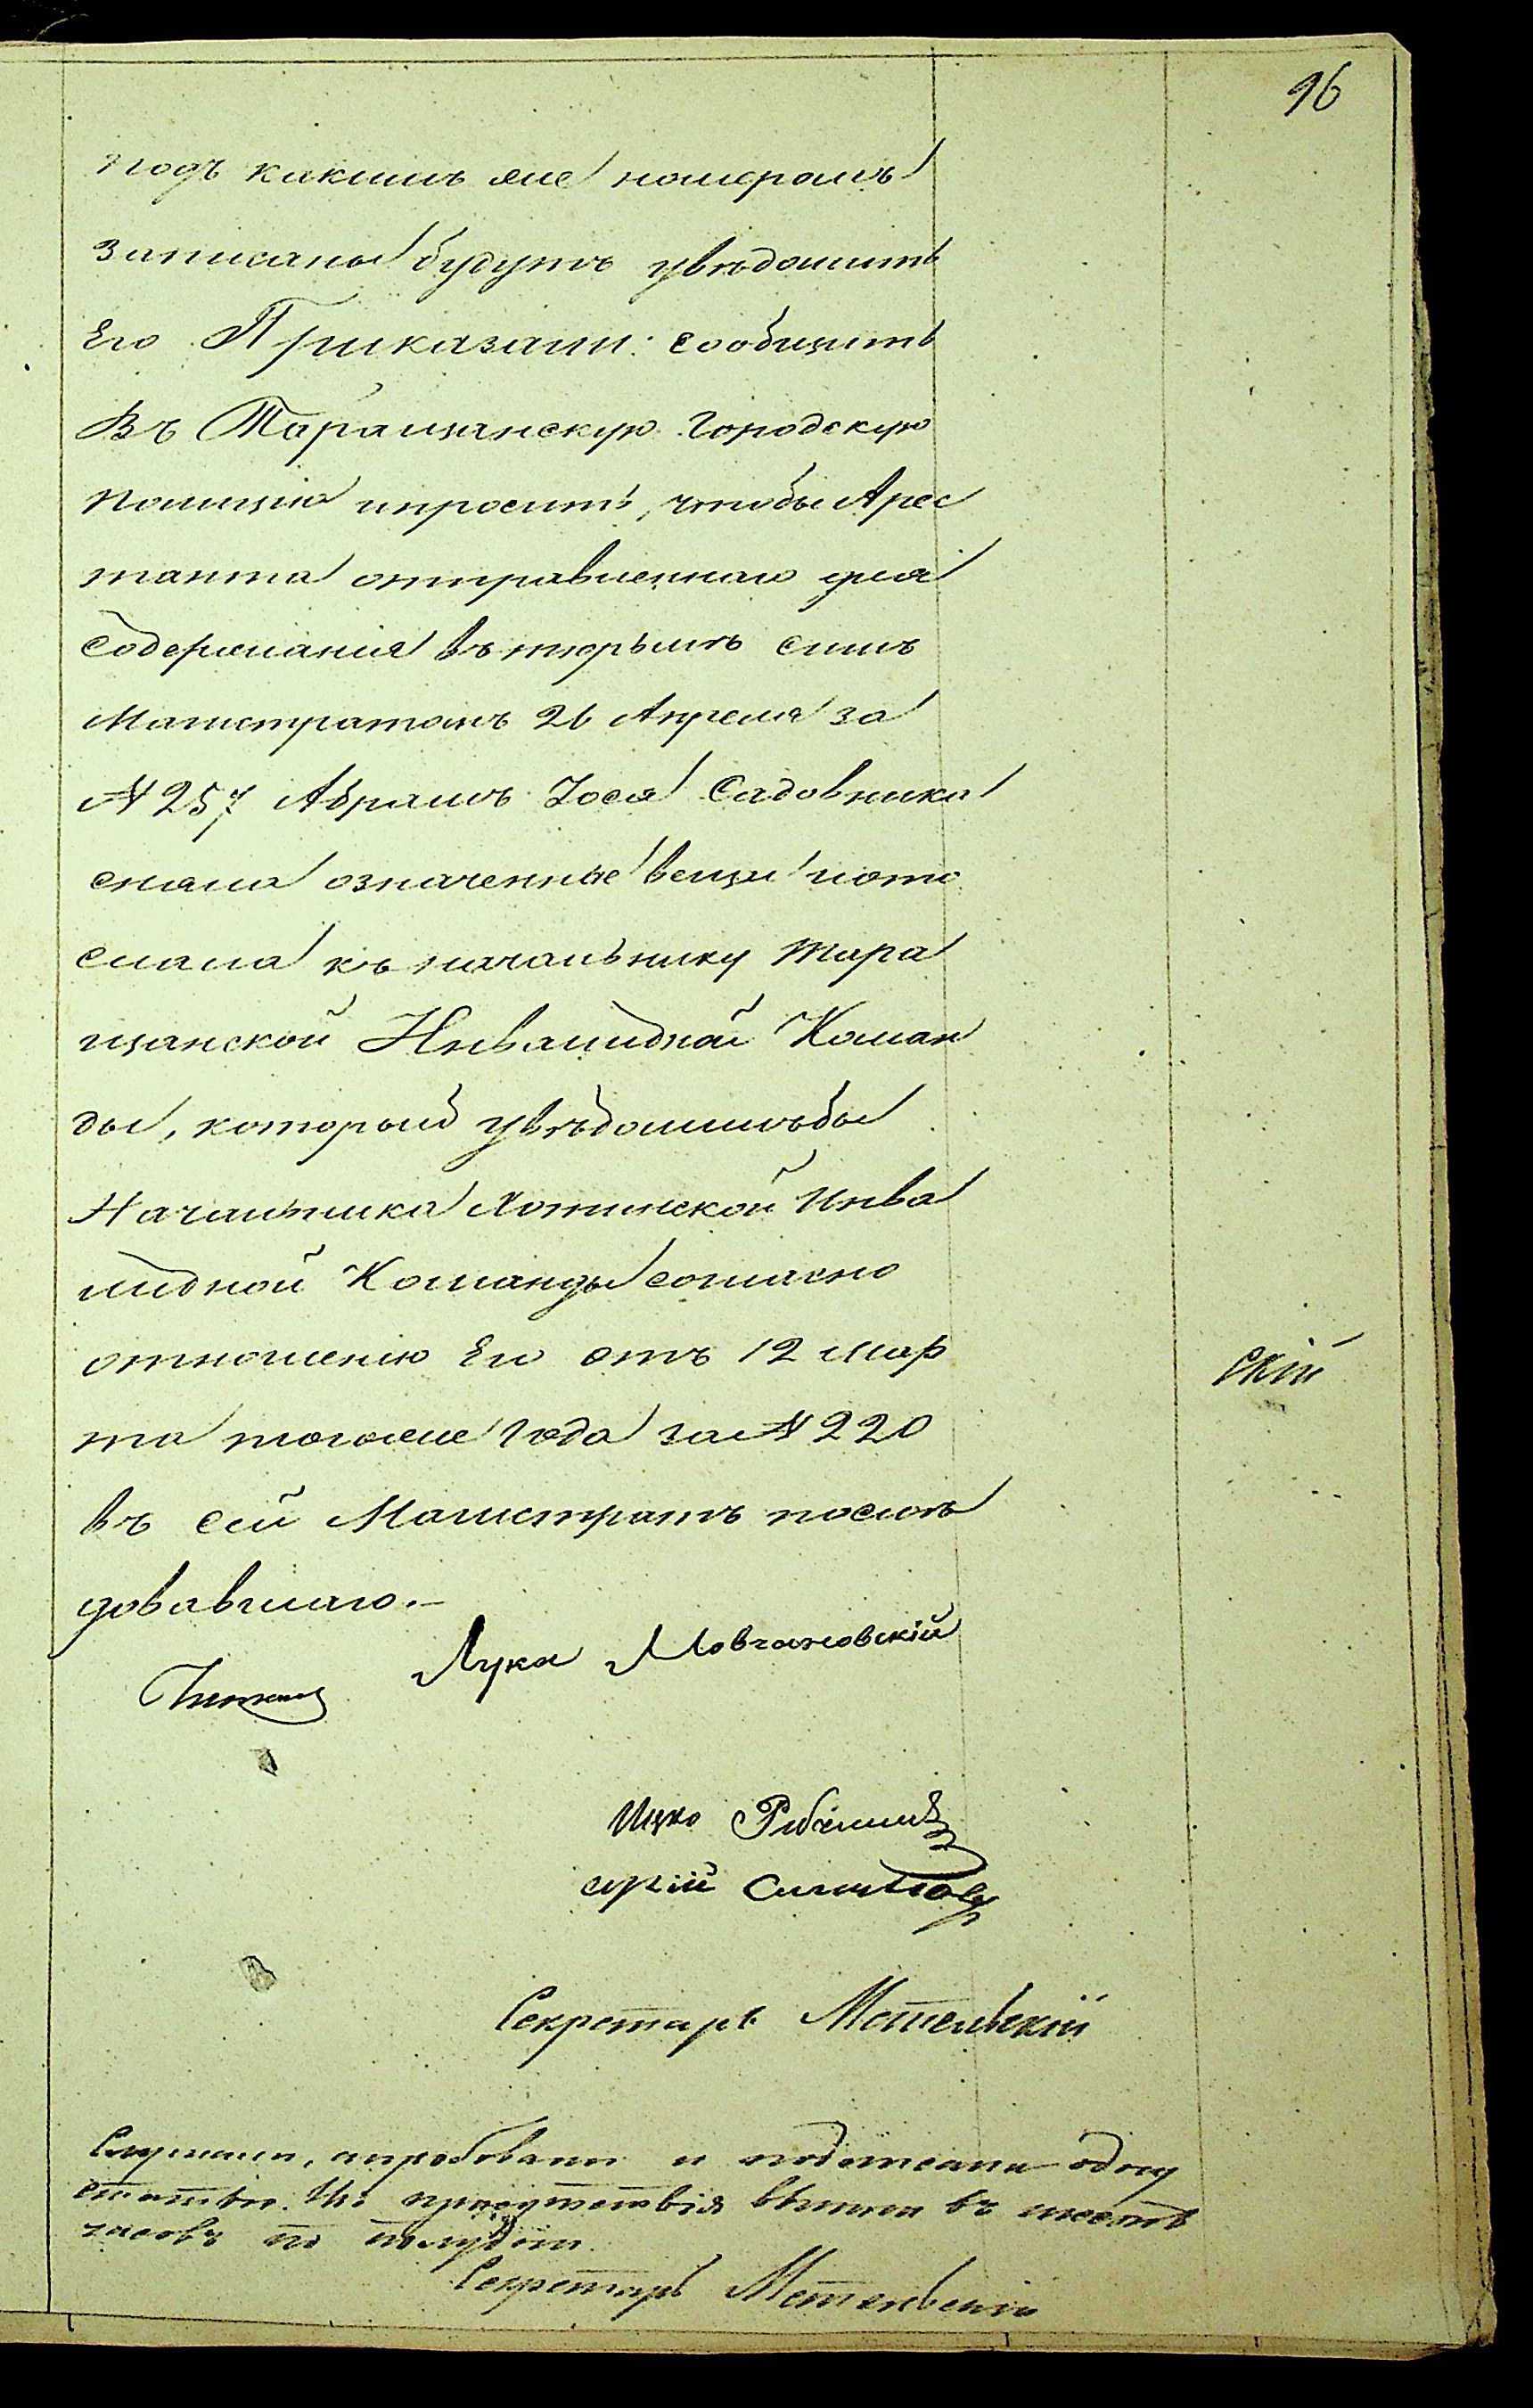 96
подъ какимъ же номеромъ
записаны будутъ увѣдомить
Его Приказали: сообщить
Въ Таращанскую Городскую
полицію ипросить, чтобы Арес
танта отправленнаго для
содержанія въ тюрьмѣ симъ
Магистратомъ 26 Апреля за
№ 257 Абрамъ Іося Садовника
сняла означенные вещи иото
слала къ начальнику Тара
щанской Инвалидной Коман
ды, который увѣдомилъбы
Начальника Хотинской Инва
лидной Команды согласно
отношенію Его отъ 12 мар
та тогоже года за № 220
въ сей Магистратъ послѣ
довавшаго.–
Лука Мовчановскій
Ицко
скій
Секретарь Метельскій
Слушали, апробовали и подписали одну
статью. Изъ присутствія вышли въ шесть
часовъ по полудни.
Секретарь Метельскій